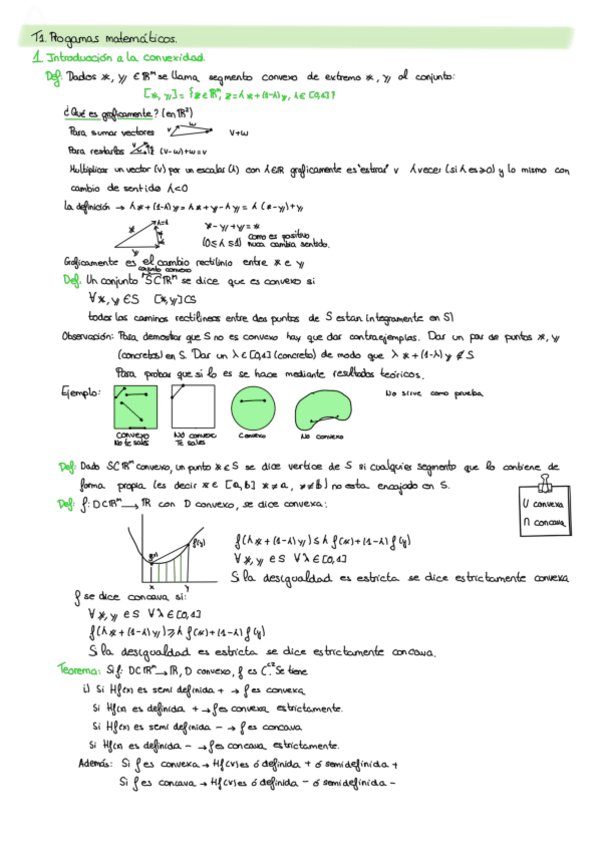 T1. Progamas matemáticos.
1 Introducción a la convexidad.
Def: Dados x, y ∈ ℝⁿ se llama segmento convexo de extremo x, y al conjunto:
[x, y] = {z ∈ ℝⁿ, z = λx + (1-λ)y, λ ∈ [0,1]}
¿Qué es graficamente? (en ℝ²)
Para sumar vectores v w v+w
Para restarlos (v-w)+w=v
Multiplicar un vector (v) por un escalar (λ) con λ∈ℝ graficamente es "estirar" v λ veces (si λ es ≥0) y lo mismo con
cambio de sentido λ<0
La definición → λx + (1-λ)y = λx + y - λy = λ(x-y)+y
x-y+y=x
(0≤λ≤1) como es positivo nunca cambia sentido.
Graficamente es el cambio rectilinio entre x e y
conjunto convexo
Def: Un conjunto S⊂ℝⁿ se dice que es convexo si
∀x, y ∈ S [x, y] ⊂ S
todos los caminos rectilineos entre dos puntos de S estan integramente en S)
Observación: Para demostrar que S no es convexo hay que dar contraejemplos. Dar un par de puntos x, y
(concretos) en S. Dar un λ ∈ [0,1] (concreto) de modo que λx + (1-λ)y ∉ S
Para probar que si lo es se hace mediante resultados teóricos.
Ejemplo:
No sirve como prueba
Convexo No te sales
No convexo Te sales
Convexo
No convexo
Def: Dado S⊂ℝⁿ convexo, un punto x ∈ S se dice vertice de S si cualquier segmento que lo contiene de
forma propia (es decir x ∈ [a,b] x≠a, x≠b) no esta encajado en S.
Def: f: D⊂ℝⁿ → ℝ con D convexo, se dice convexa:
U convexa
∩ concava
f(x) f(y) x y
f(λx + (1-λ)y) ≤ λf(x) + (1-λ)f(y)
∀x, y ∈ S ∀λ ∈ [0,1]
Si la desigualdad es estricta se dice estrictamente convexa
f se dice concava si:
∀x, y ∈ S ∀λ ∈ [0,1]
f(λx + (1-λ)y) ≥ λf(x) + (1-λ)f(y)
Si la desigualdad es estricta se dice estrictamente concava.
Teorema: Si f: D⊂ℝⁿ → ℝ, D convexo, f es C². Se tiene
i) Si Hf(x) es semi definida + → f es convexa
Si Hf(x) es definida + → f es convexa estrictamente.
Si Hf(x) es semi definida - → f es concava
Si Hf(x) es definida - → f es concava estrictamente.
Además: Si f es convexa → Hf(x) es ó definida + ó semidefinida +
Si f es concava → Hf(x) es ó definida - ó semidefinida -